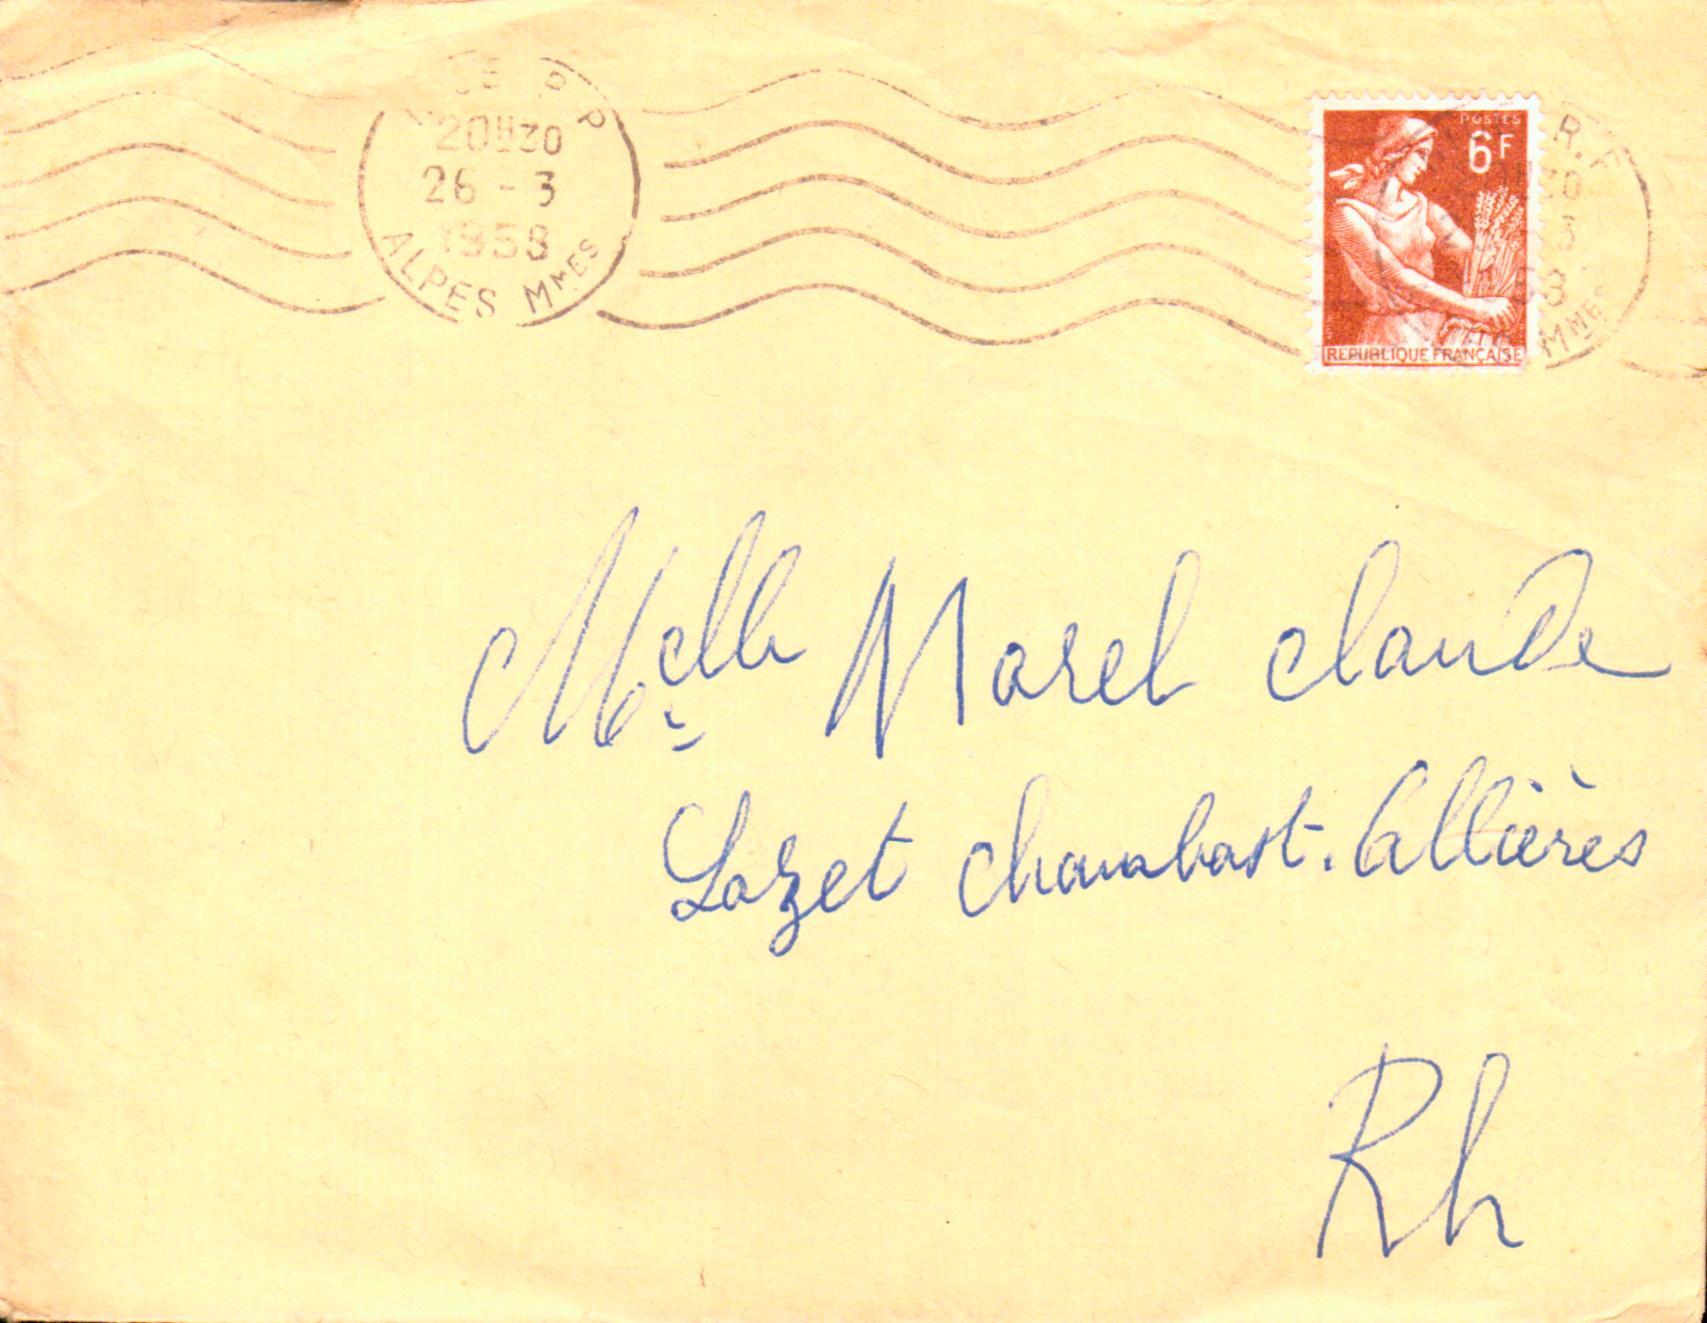 R P
20H30
26 - 3
1958
ALPES MMES
POSTES
6F
REPUBLIQUE FRANÇAISE
R.P
30
3
58
MMES
Melle Morel Claude
Lozet Chambost. Allières
Rh